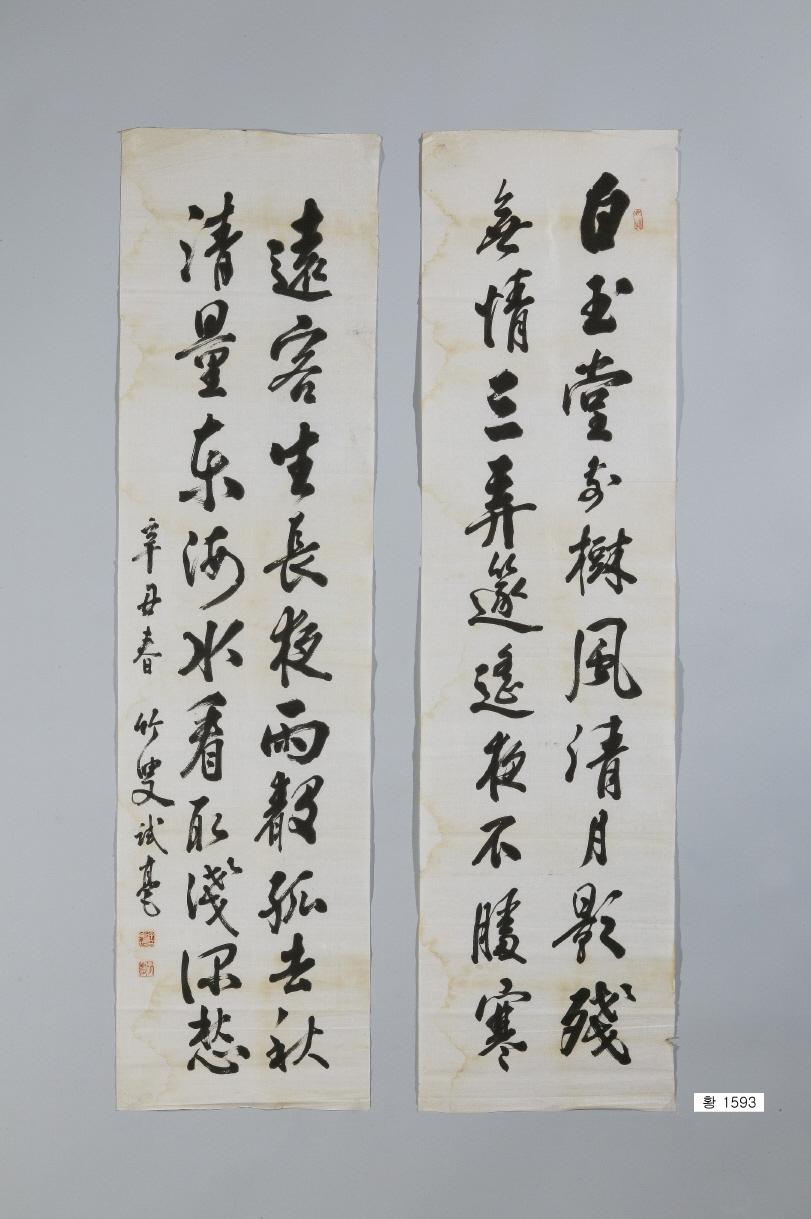 白玉堂前樹風清月影殘
無情三弄篴遙夜不勝寒
遠客坐長夜雨聲孤寺秋
請量東海水看取淺深愁
辛丑春 竹叟試毫
황 1593